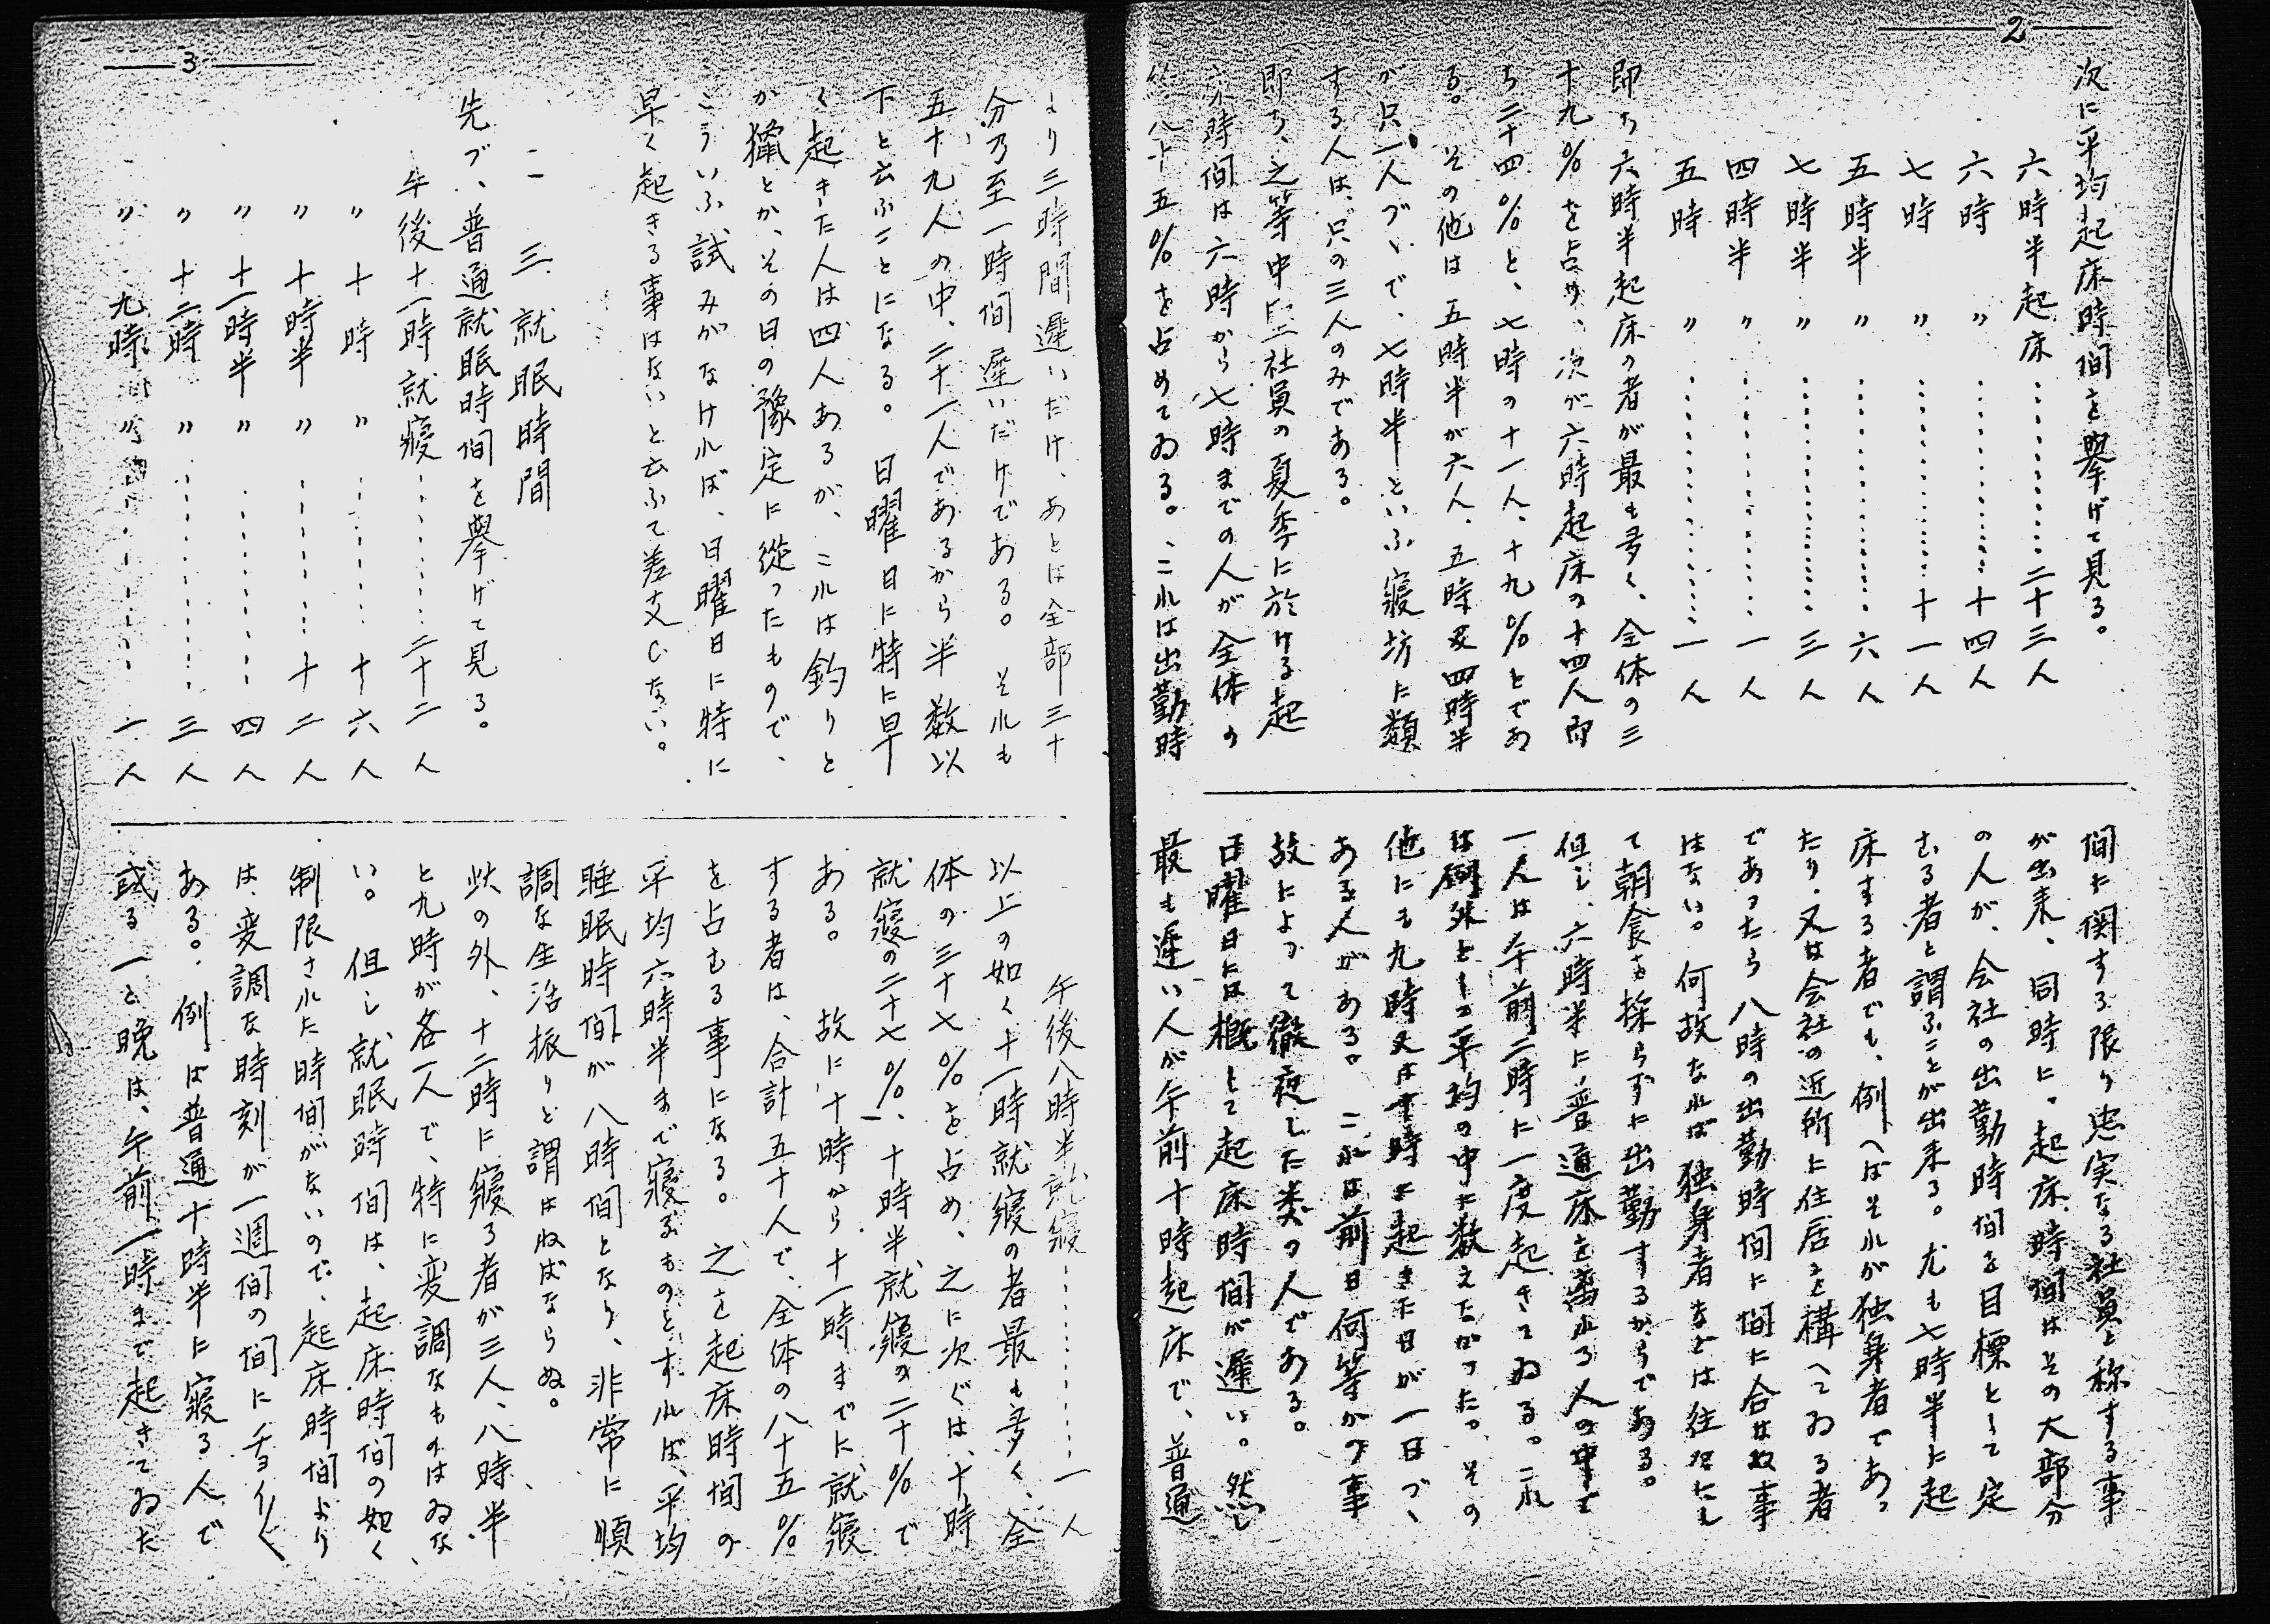 2
次に平均起床時間を擧げて見る。
六時半起床………………二十三人
六時〃………………十四人
七時〃………………十一人
五時半〃………………六人
七時半〃………………三人
四時半〃………………一人
五時〃………………一人
即ち六時半起床の者が最も多く、全体の三
十九％を占め、次が六時起床の十四人即
ち二十四％と、七時の十一人、十九％とであ
る。その他は五時半が六人、五時及四時半
が只一人づゝで、七時半といふ寝坊に類
する人は、只の三人のみである。
即ち、之等中堅社員の夏季に於ける起
時間は六時から七時までの人が全体の
八十五％を占めてゐる。これは出勤時
間に関する限り忠実なる社員と称する事
が出来、同時に、起床時間はその大部分
の人が、会社の出勤時間を目標として定
むる者と謂ふことが出来る。尤も七時半に起
床する者でも、例へばそれが独身者であっ
たり、又は会社の近所に住居を構へてゐる者
であったら八時の出勤時間に間に合は故事
はない。何故なれば独身者などは往々にし
て朝食を採らずに出勤するからである。
但し、六時半に普通床を离れる人の中で
一人は午前二時に一度起きてゐる。これ
は例外として平均の中に数えたがった。その
他にも九時又は十時に起きた日が一日づゝ
ある人がある。これは前日何等かの事
故によって徹夜した类の人である。
日曜日には概して起床時間が遲い。然し
最も遲い人が午前十時起床で、普通
3
より三時間遲いだけ、あとは全部三十
分乃至一時間遲いだけである。それも
五十九人の中、二十一人であるから半数以
下と云ふことになる。日曜日に特に早
く起きた人は四人あるが、これは釣りと
か獵とか、その日の豫定に從ったもので、
こういふ試みがなければ、日曜日に特に
早く起きる事はないと云ふて差支へない。
二 三、就眠時間
先づ、普通就眠時间を擧げて見る。
午後十一時就寝………………二十二人
〃十時〃………………十六人
〃十時半〃………………十二人
〃十一時半〃………………四人
〃十二時〃………………三人
〃九時〃………………一人
午後八時半就寝………………一人
以上の如く十一時就寝の者最も多く、全
体の三十七％を占め、之に次ぐは、十時
就寝の二十七％、十時半就寝の二十％で
ある。故に十時から十一時までに就寝
する者は、合計五十人で、全体の八十五％
を占むる事になる。之を起床時間の
平均六時半まで寝るものとすれば、平均
睡眠時间が八時间となり、非常に順
調な生活振りと謂はねばならぬ。
此の外、十二時に寝る者が三人、八時半
と九時が各一人で、特に変調なものはゐな
い。但し就眠時间は、起床時间の如く
制限された時间がないので、起床時间より
は、変調な時刻が一週间の间に
ある。例ば普通十時半に寝る人で
或る一と晩は、午前一時まで起きてゐた